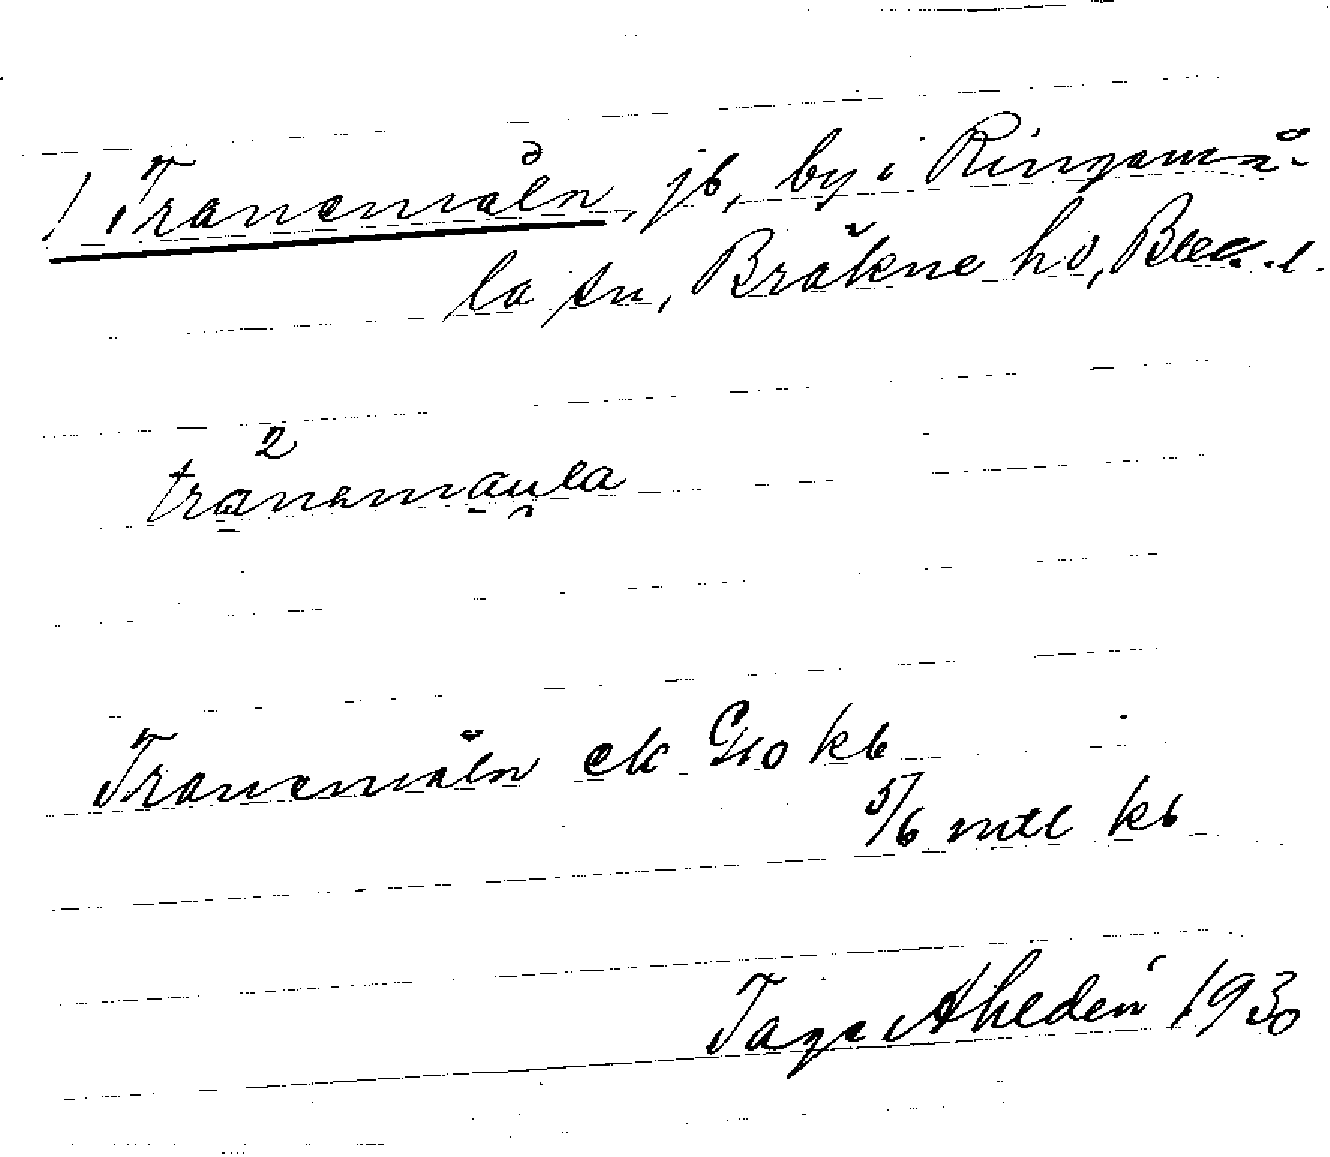 1 Tranemåla, jb, by i Ringamå-
la sn, Bräkne hd, Blek. l.
2
tranamau̯la
Tranemåla ek Geo kb
5/6 mtl kb
Tage Ahedén 1930